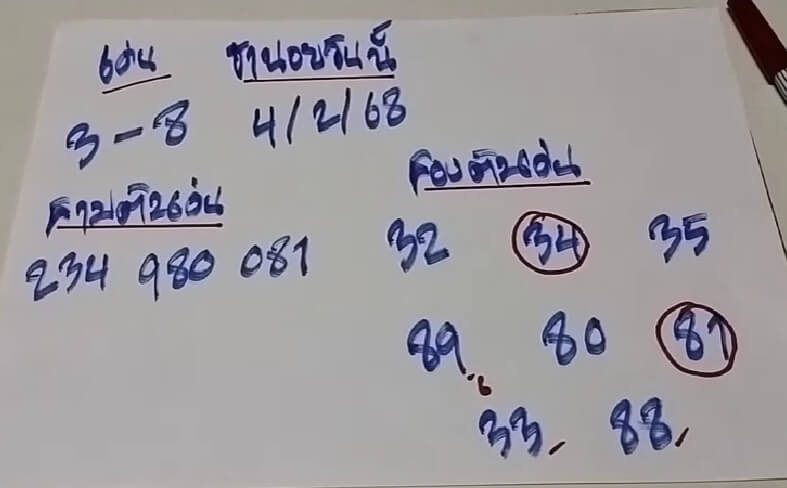 เด่น ฮานอยวันนี้
3-8 4/2/68
สามตัวเด่น สองตัวเด่น
234 980 081
32 34 35
89 80 81
33 88